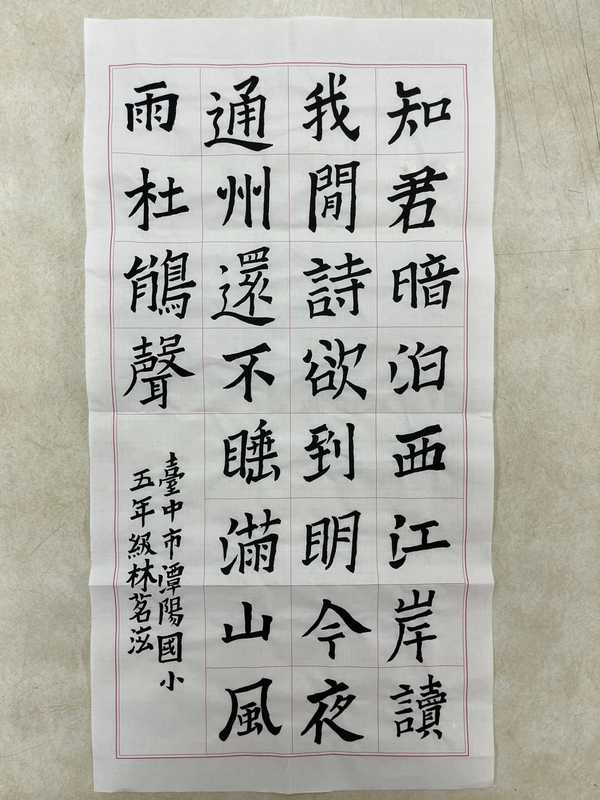 知君暗泊西江岸讀
我閒詩欲到明今夜
通州還不睡滿山風
雨杜鵑聲
臺中市潭陽國小
五年級林茗